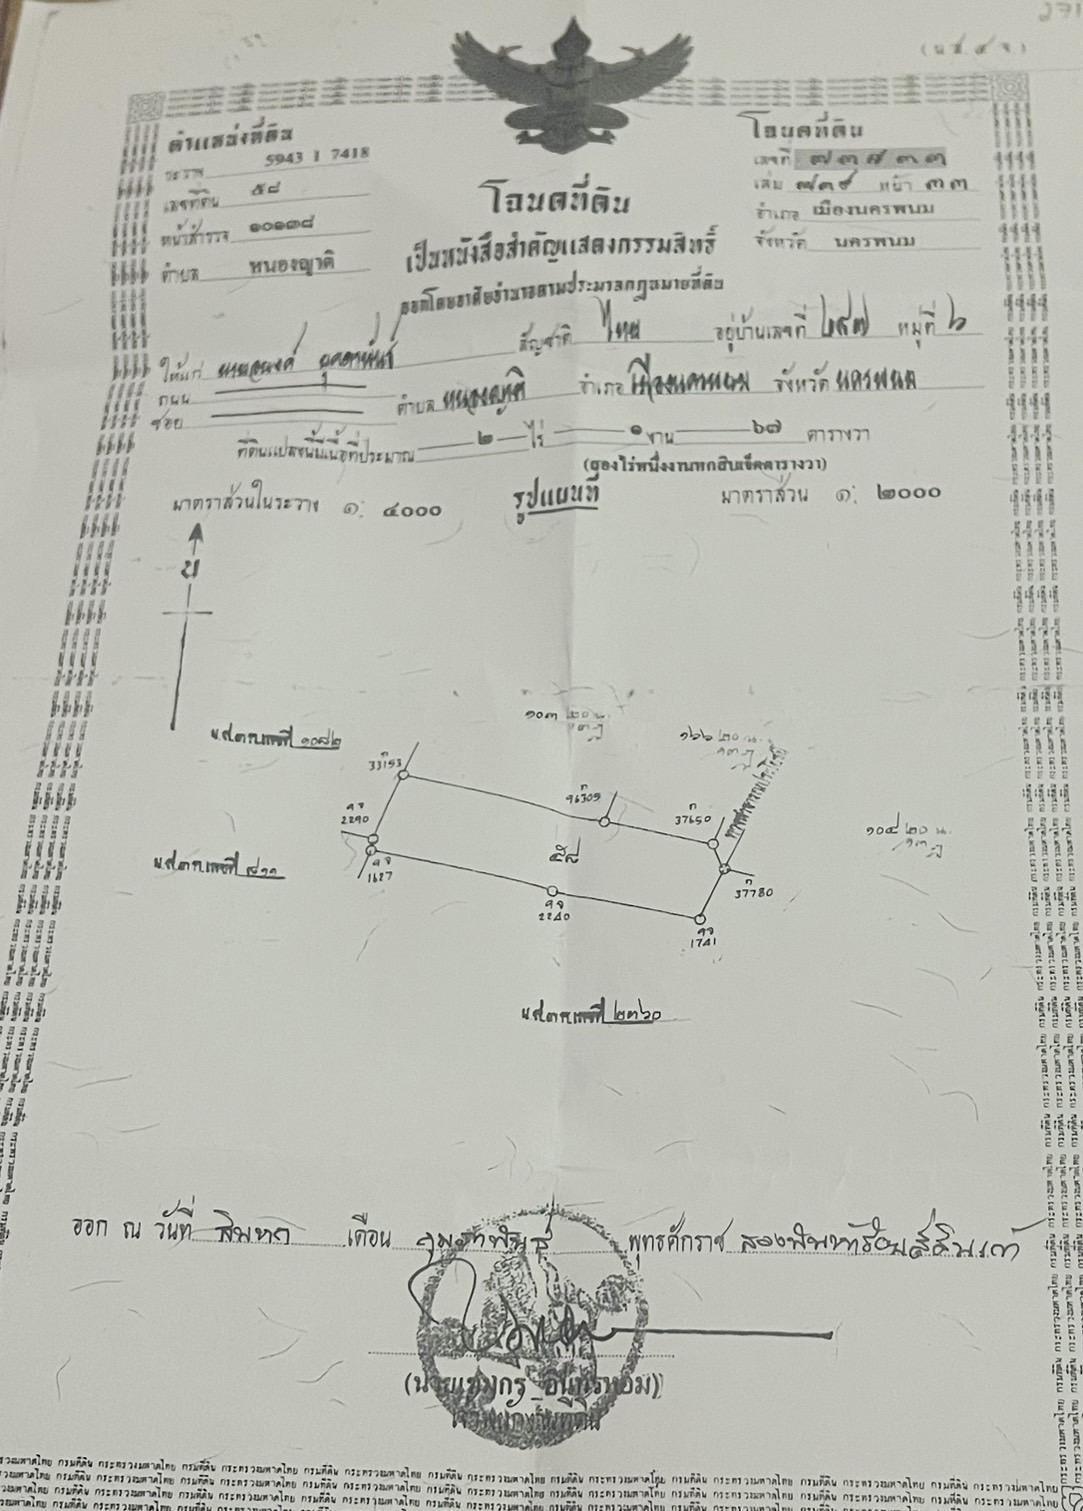 (น.ส. ๔ จ.)
ตำแหน่งที่ดิน
ระวาง 5943 I 7418
เลขที่ดิน ๕๘
หน้าสำรวจ ๑๐๑๓๘
ตำบล หนองญาติ
โฉนดที่ดิน
เลขที่ ๗๓๗๓๓
เล่ม ๗๓๙ หน้า ๓๓
อำเภอ เมืองนครพนม
จังหวัด นครพนม
โฉนดที่ดิน
เป็นหนังสือสำคัญแสดงกรรมสิทธิ์
ออกโดยอาศัยอำนาจตามประมวลกฎหมายที่ดิน
ให้แก่ สัญชาติ ไทย อยู่บ้านเลขที่ ๒๕๗ หมู่ที่ ๖
ถนน
ซอย ตำบล หนองญาติ อำเภอ เมืองนครพนม จังหวัด นครพนม
ที่ดินแปลงนี้มีเนื้อที่ประมาณ ๒ ไร่ ๑ งาน ๖๗ ตารางวา
(สองไร่หนึ่งงานหกสิบเจ็ดตารางวา)
มาตราส่วนในระวาง ๑: ๔๐๐๐ รูปแผนที่ มาตราส่วน ๑: ๒๐๐๐
น
น.ส.๓ก.เลขที่ ๑๐๗๒
33153
96305
37650
ทางสาธารณประโยชน์
2290
๕๘
น.ส.๓ก.เลขที่ ๘๑๑
1627
2240
37780
1741
น.ส.๓ก.เลขที่ ๒๓๖๐
ออก ณ วันที่ สิบหก เดือน กุมภาพันธ์ พุทธศักราช สองพันห้าร้อยสี่สิบเก้า
เจ้าพนักงานที่ดิน
กรมที่ดิน กระทรวงมหาดไทย